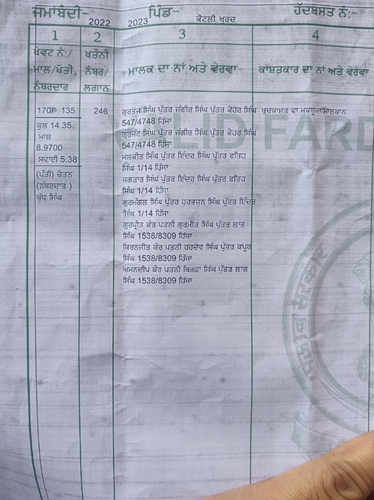 ਜਮਾਂਬੰਦੀ- 2022 2023 ਪਿੰਡ- ਕੋਟਲੀ ਖੁਰਦ ਹੱਦਬਸਤ ਨੰ:-
1 2 3 4
ਖੇਵਟ ਨੰ:/ ਖਤੌਨੀ
ਮਾਲ/ਪੱਤੀ, ਨੰਬਰ/ ਮਾਲਕ ਦਾ ਨਾਂ ਅਤੇ ਵੇਰਵਾ ਕਾਸ਼ਤਕਾਰ ਦਾ ਨਾਂ ਅਤੇ ਵੇਰਵਾ
ਨੰਬਰਦਾਰ ਲਗਾਨ
170/ 135 246 ਗੁਰਤੇਜ ਸਿੰਘ ਪੁੱਤਰ ਜੰਗੀਰ ਸਿੰਘ ਪੁੱਤਰ ਕੇਹਰ ਸਿੰਘ ਖੁਦਕਾਸ਼ਤ ਵਾ ਮਕਬੂਜ਼ਾ ਮਾਲਕਾਨ
547/4748 ਹਿੱਸਾ
ਕੁਲ 14.35 ਗੁਰਜੰਟ ਸਿੰਘ ਪੁੱਤਰ ਜੰਗੀਰ ਸਿੰਘ ਪੁੱਤਰ ਕੇਹਰ ਸਿੰਘ
ਮਾਲ 547/4748 ਹਿੱਸਾ
8.9700 ਮਲਕੀਤ ਸਿੰਘ ਪੁੱਤਰ ਇੰਦਰ ਸਿੰਘ ਪੁੱਤਰ ਫਤਿਹ
ਸਵਾਈ 5.38 ਸਿੰਘ 1/14 ਹਿੱਸਾ
(ਪੱਤੀ) ਚੇਤਨ ਜਗਤਾਰ ਸਿੰਘ ਪੁੱਤਰ ਇੰਦਰ ਸਿੰਘ ਪੁੱਤਰ ਫਤਿਹ
(ਨੰਬਰਦਾਰ) ਸਿੰਘ 1/14 ਹਿੱਸਾ
ਬੁੱਧ ਸਿੰਘ ਗੁਰਮੰਗਲ ਸਿੰਘ ਪੁੱਤਰ ਹਰਭਜਨ ਸਿੰਘ ਪੁੱਤਰ ਇੰਦਰ
ਸਿੰਘ 1/14 ਹਿੱਸਾ
ਗੁਰਪ੍ਰੀਤ ਕੌਰ ਪਤਨੀ ਗੁਰਮੀਤ ਸਿੰਘ ਪੁੱਤਰ ਲਾਭ
ਸਿੰਘ 1538/8309 ਹਿੱਸਾ
ਕਿਰਨਜੀਤ ਕੌਰ ਪਤਨੀ ਹਰਦੇਵ ਸਿੰਘ ਪੁੱਤਰ ਕਪੂਰ
ਸਿੰਘ 1538/8309 ਹਿੱਸਾ
ਅਮਨਦੀਪ ਕੌਰ ਪਤਨੀ ਸਿੰਘ ਪੁੱਤਰ ਲਾਲ
ਸਿੰਘ 1538/8309 ਹਿੱਸਾ
FARD
ਪੰਜਾਬ ਸਰਕਾਰ